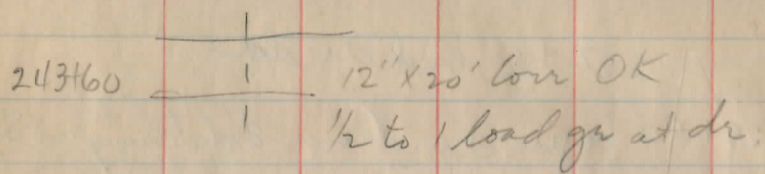 243+60 12" x 20' Corr OK
1/2 to 1 load gr at dr.